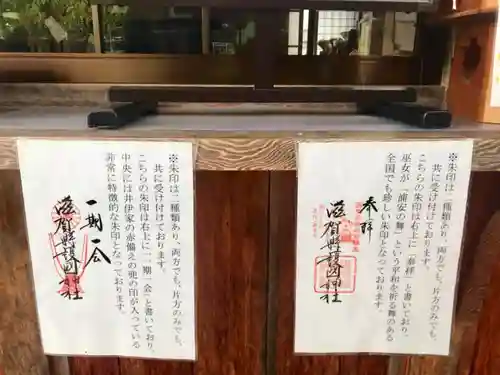 ※朱印は二種類あり、両方でも、片方のみでも、
共に受け付けております。
こちらの朱印は右上に「奉拝」と書いており、
巫女が「浦安の舞」という平和を祈る舞のある
全国でも珍しい朱印となっております。
奉拝
滋賀縣護國神社
※朱印は二種類あり、両方でも、片方のみでも、
共に受け付けております。
こちらの朱印は右上に「一期一会」と書いており、
中央には井伊家の赤備えの兜の印が入っている
非常に特徴的な朱印となっております。
一期一会
滋賀縣護國神社